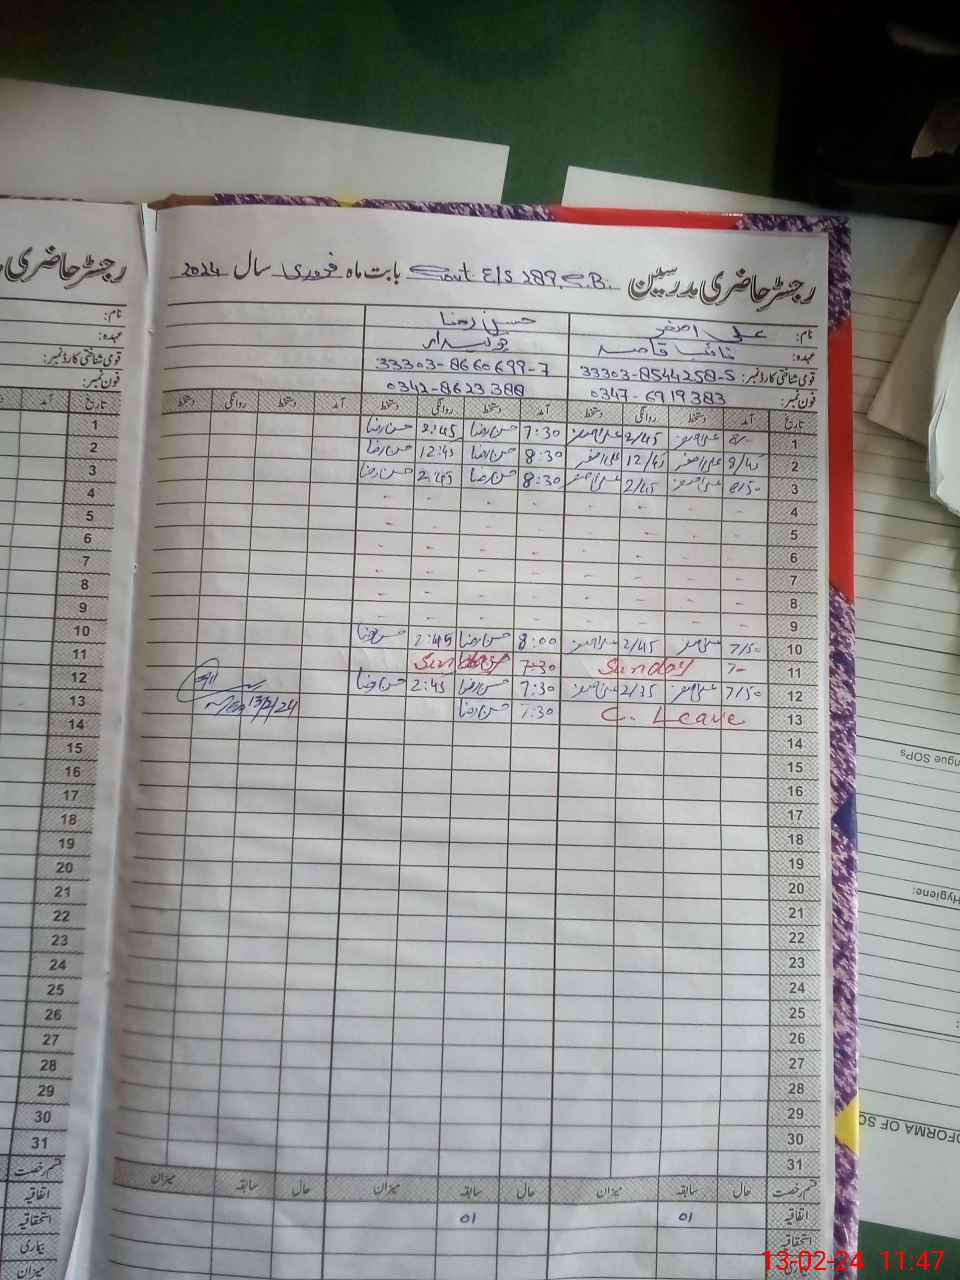 رجسٹر حاضری مدرسین Govt E/S 289 G.B. بابت ماہ فروری سال 2024
رجسٹر حاضری
نام: علی اصغر حسن رضا
عہدہ: نائب قاصد چوکیدار
قومی شناختی کارڈ نمبر: 33303-8544258-5 33303-8660699-7
فون نمبر: 0347-6919383 0342-8623388
تاریخ آمد دستخط روانگی دستخط آمد دستخط روانگی دستخط آمد دستخط روانگی دستخط
1 8/- علی اصغر 2/45 علی اصغر 7:30 حسن رضا 2:45 حسن رضا
2 8/45 علی اصغر 12/45 علی اصغر 8:30 حسن رضا 12:45 حسن رضا
3 8/50 علی اصغر 2/45 علی اصغر 8:30 حسن رضا 2:45 حسن رضا
4 - - - - - - - -
5 - - - - - - - -
6 - - - - - - - -
7 - - - - - - - -
8 - - - - - - - -
9 - - - - - - - -
10 7/50 علی اصغر 2/45 علی اصغر 8:00 حسن رضا 2:45 حسن رضا
11 7- Sunday 7:30 Sunday
12 7/50 علی اصغر 2/35 علی اصغر 7:30 حسن رضا 2:45 حسن رضا
13 C. Leave 7:30 حسن رضا
13/2/24
14
15
16
17
18
19
20
21
22
23
24
25
26
27
28
29
30
31
قسم رخصت حال سابقہ میزان حال سابقہ میزان حال سابقہ میزان
اتفاقیہ 01 01
استحقاقیہ
بیماری
میزان
نام:
عہدہ:
قومی شناختی کارڈ نمبر:
فون نمبر:
تاریخ آمد
1
2
3
4
5
6
7
8
9
10
11
12
13
14
15
16
17
18
19
20
21
22
23
24
25
26
27
28
29
30
31
قسم رخصت
اتفاقیہ
استحقاقیہ
بیماری
میزان
ngue SOPs
Hygiene:
OFORMA OF SO
13-02-24 11:47